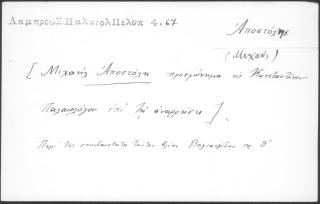 Λαμπρου Σ. Παλαιολ Πελοπ 4, 67
Ἀποστόλης
(Μιχαήλ)
[ Μιχαήλ Ἀποστόλη προσφώνημα εἰς Κωνσταντῖνον
Παλαιολόγον ἐπὶ τῇ ἀναρρήσει ]
Περὶ τῆς σπουδαιότητος τούτου